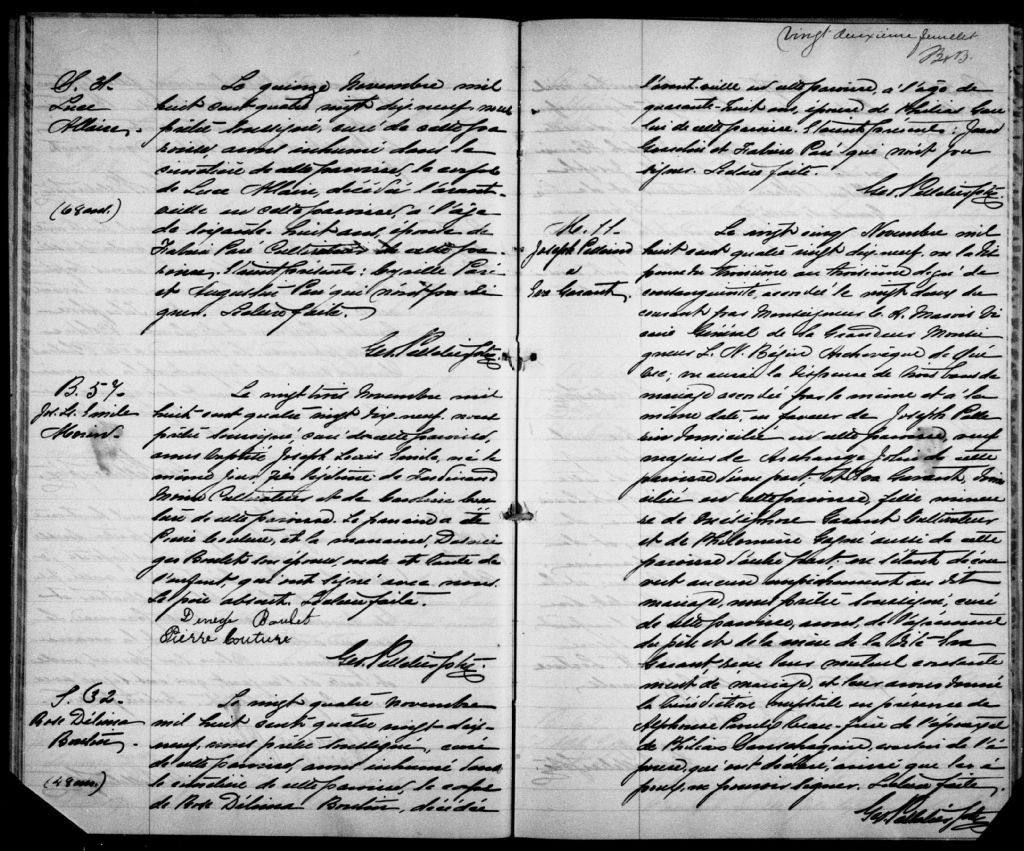 S. 31.
Luce
Allaire.
(68 ans.)
Le quinze Novembre mil
huit cent quatre vingt dix neuf, nous
prêtre soussigné, curé de cette pa
roisse, avons inhumé dans le
cimetière de cette paroisse, le corps
de Luce Allaire, décédée l'avant-
veille en cette paroisse, à l'âge
de soixante-huit ans, épouse de
Fabien Paré Cultivateur de cette pa
roisse. Etaient présents: Cyrille Paré
et Augustin Paré qui n'ont pu si
gner. Lecture faite.
Geo. Pelletier Ptre.
B. 57.
Jos. Ls. Emile
Morin.
Le vingt trois Novembre mil
huit cent quatre vingt dix neuf, nous
prêtre soussigné, curé de cette paroisse,
avons baptisé Joseph Louis Emile, né le
même jour, fils légitime de Ferdinand
Morin Cultivateur et de Caroline
de cette paroisse. Le parrain a été
Pierre Couture, et la marraine,
Boulet son épouse, oncle et tante de
l'enfant, qui ont signé avec nous.
Le père absent. Lecture faite.
Denege Boulet
Pierre Couture
Geo. Pelletier Ptre.
S. 32.
Rose Délima
Boutin
(48 ans.)
Le vingt quatre Novembre
mil huit cent quatre vingt dix-
neuf, nous prêtre soussigné, curé
de cette paroisse, avons inhumé dans
le cimetière de cette paroisse, le corps
de Rose Délima Boutin, décédée
Vingt deuxième feuillet
l'avant-veille en cette paroisse, à l'âge de
quarante-huit ans, épouse de
de cette paroisse. Etaient présents: Jean
et Fabien Paré qui n'ont pu
signer. Lecture faite.
Geo. Pelletier Ptre.
M. 11.
Joseph Pellerin
&
Eva Garant.
Le vingt cinq Novembre mil
huit cent quatre vingt dix neuf, vu la dis
pense du troisième au troisième degré de
consanguinité, accordée le vingt deux du
courant par Monseigneur le R. Marois Vi
caire Général de Sa Grandeur Monsei
gneur L. N. Bégin Archevêque de Qué
bec; vu aussi la dispense de trois bans de
mariage accordée par le même et à la
même date, en faveur de Joseph Pelle
rin domicilié en cette paroisse, veuf
majeur de Archange de cette
paroisse d'une part, et Eva Garant, domi
ciliée en cette paroisse, fille mineu
re de Onésiphore Garant Cultivateur
et de Philomène aussi de cette
paroisse d'autre part; ne s'étant décou
vert aucun empêchement au dit
mariage, nous prêtre soussigné, curé
de cette paroisse, avons, du consentement
du père et de la mère de la dite Eva
Garant, reçu leur mutuel consente
ment de mariage, et leur avons donné
la bénédiction nuptiale en présence de
Alphonse beau-frère de l'époux, et
de Philias cousin de l'é
poux, qui ont déclaré, ainsi que les é
poux, ne pouvoir signer. Lecture faite.
Geo. Pelletier Ptre.